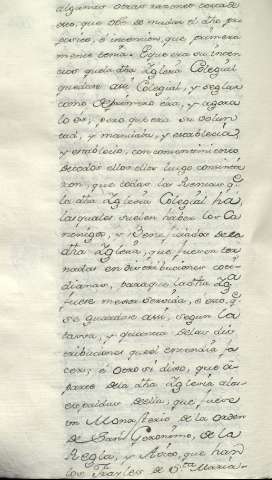 algunas otras razones
otro, que obo de mudar el dho pro
posito, è intencion, que primera
mente tenia: Y que era su inten
cion que la dha Yglesia Colegial
quedase assi Colegial, y seglar
como de primero era, y agora
lo es, pero que era su volun
tad, y mandaba, y establecia,
y establecio, con consentimiento
de todos ellos luego
ron, que todas las Rentas q.e
la dha Yglesia Colegial ha,
las quales suelen haber los Ca
nonigos, y Beneficiados de la
dha Yglesia, que fuesen tor
nadas en distribuciones coti
dianas, para que la dha Yg.a
fuese menos servida, è otro, q.e
se guardase assi, segun la
tassa, y quantia de las dis
tribuciones que el entendia fa
cer; è otro si dixo, que à
parte de la dha Yglesia à las
espaldas de ella, que fuese
un Monasterio de la orden
de Sant Geronimo, de la
Regla, y Avito, que han
los Frayles de S.ta Maria